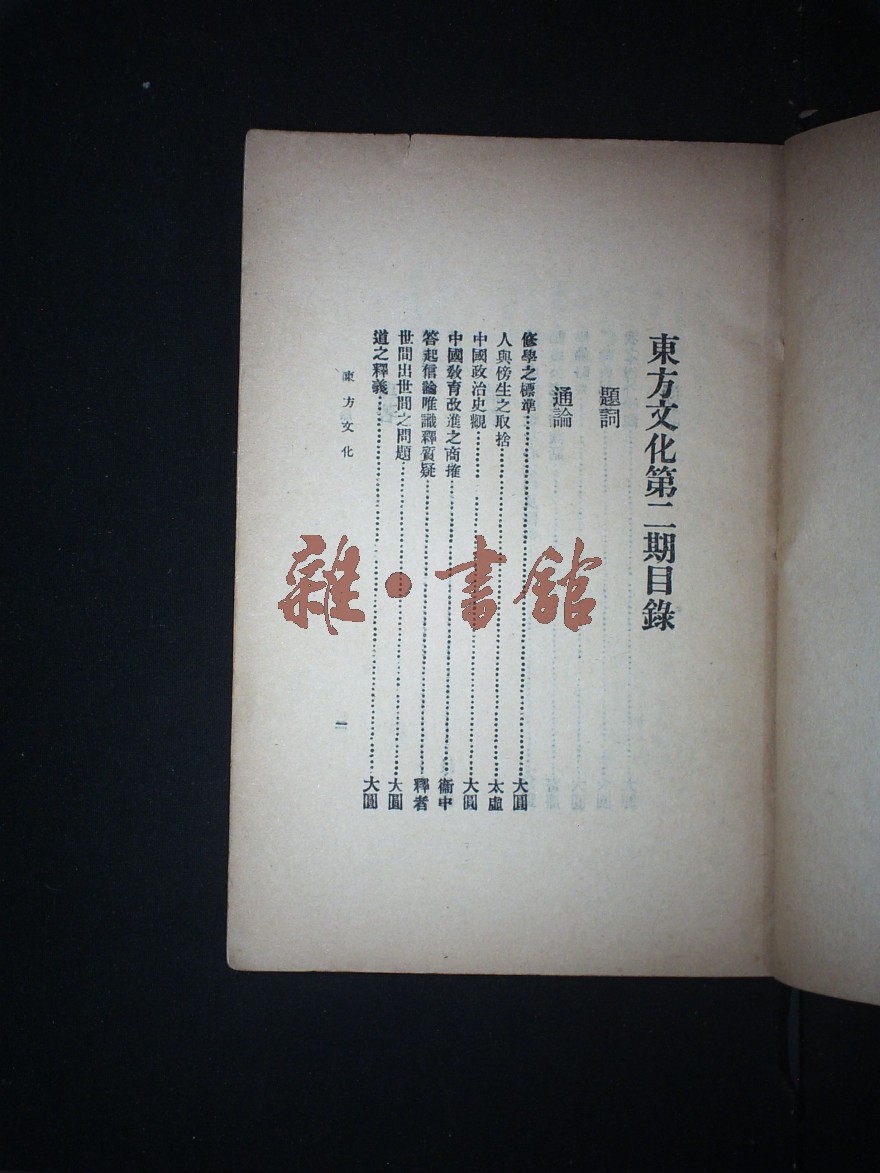 東方文化第二期目錄
題詞
通論
修學之標準……大圓
人與傍生之取捨……太虛
中國政治史觀……大圓
中國教育改進之商搉……衞中
答起信論唯識釋質疑……釋者
世間出世間之問題……大圓
道之釋義……大圓
東方文化
一
雜·書館